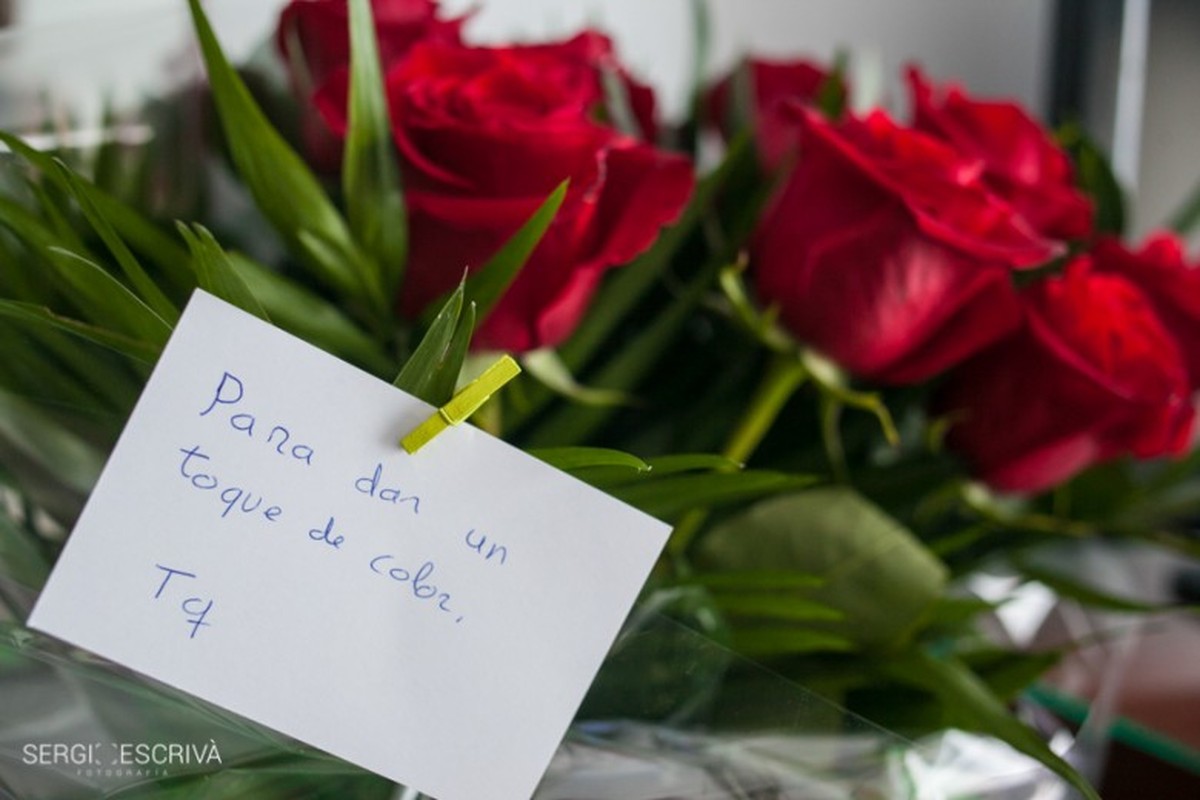 Para dar un
toque de color,
Tq
SERGI ESCRIVÀ
FOTOGRAFIA